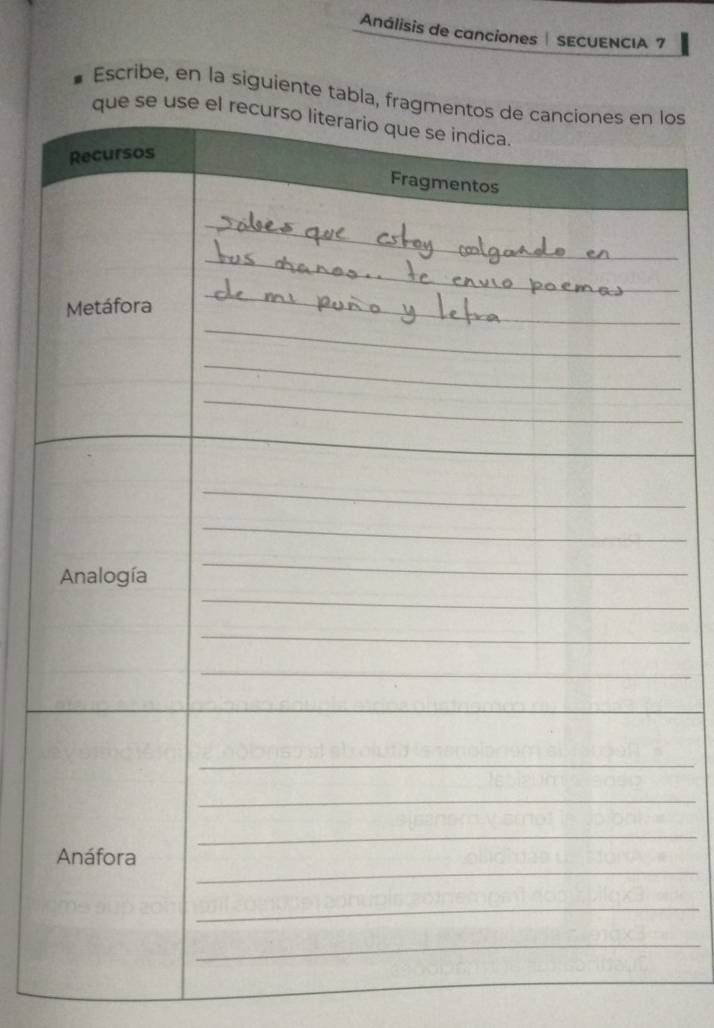 Análisis de canciones | SECUENCIA 7
Escribe, en la siguiente tabla, fragmentos de canciones en los
que se use el recurso literario que se indica.
Recursos
Fragmentos
Metáfora
sabes que estoy colgando en
tus manos.. te envio poemas
de mi puño y letra
Analogía
Anáfora